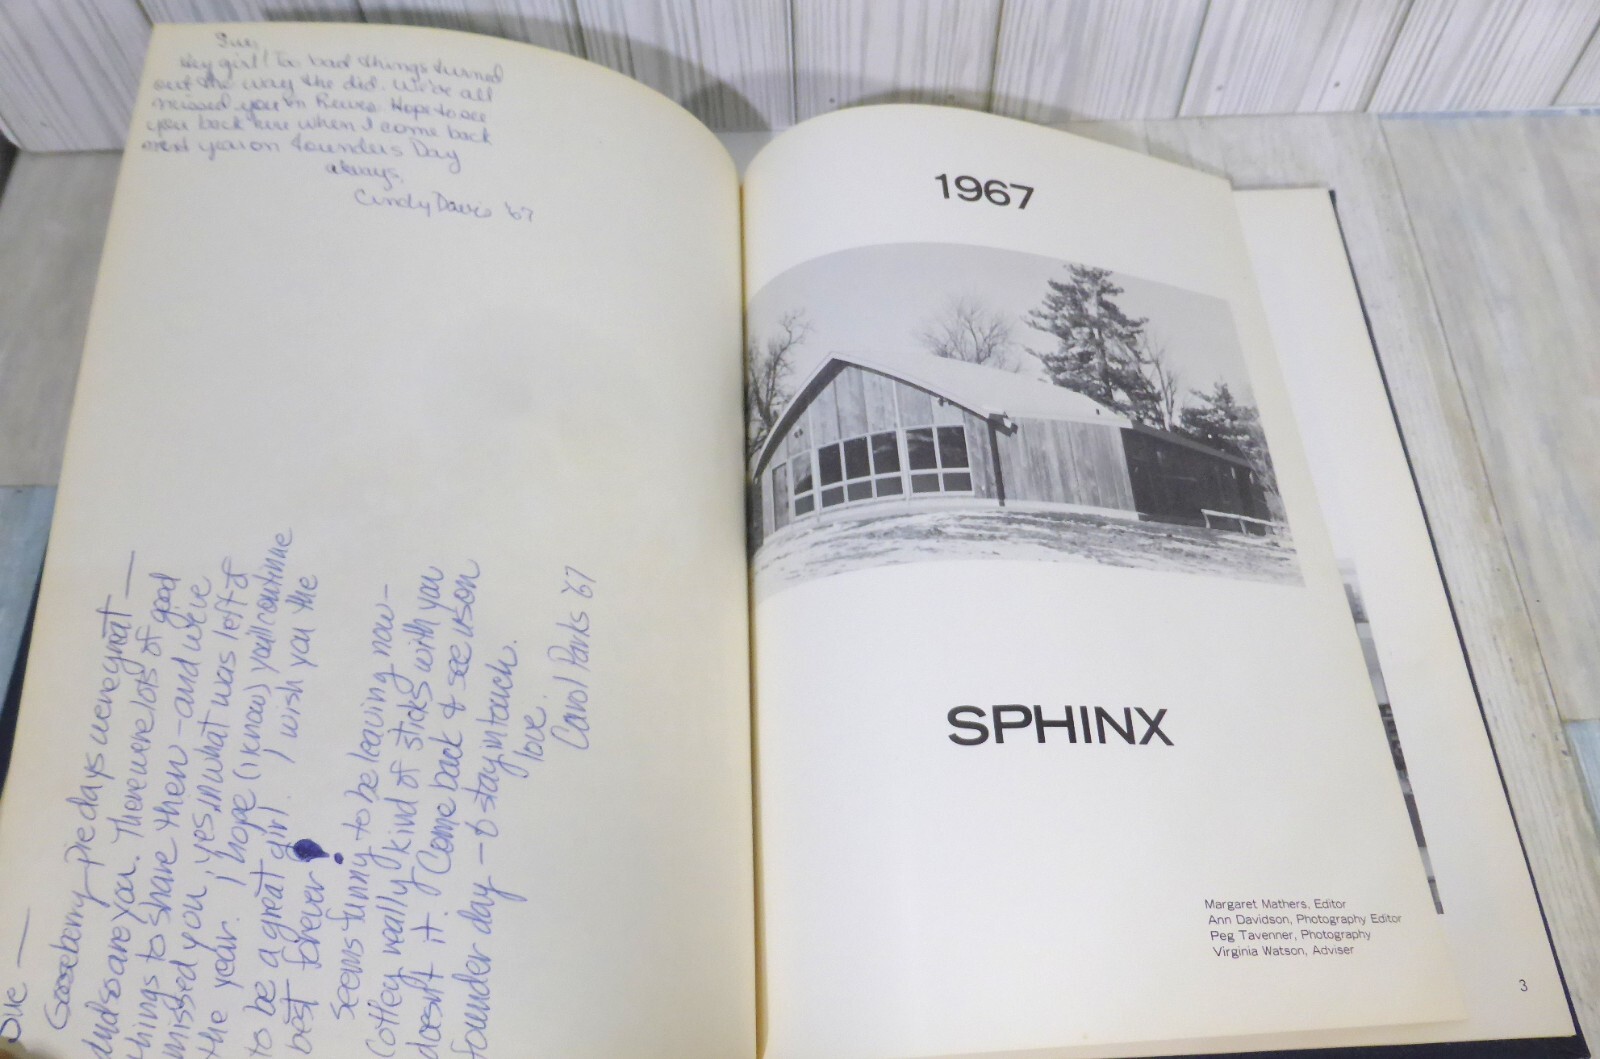 Sue,
Hey girl! Too bad things turned
out the way the did. We've all
missed you in Reeves. Hope to see
you back here when I come back
next year on Founders Day
always,
Cindy Davis '67
Sue —
Gooseberry pie days were great —
and so are you. There were lots of good
things to share then - and we've
missed you, yes, in what was left of
the year. I hope (I know) you'll continue
to be a great girl. I wish you the
best forever!
Seems funny to be leaving now -
Cottey really kind of sticks with you
doesn't it. Come back & see us on
founder day - & stay in touch.
love,
Carol Parks '67
1967
SPHINX
Margaret Mathers, Editor
Ann Davidson, Photography Editor
Peg Tavenner, Photography
Virginia Watson, Adviser
3